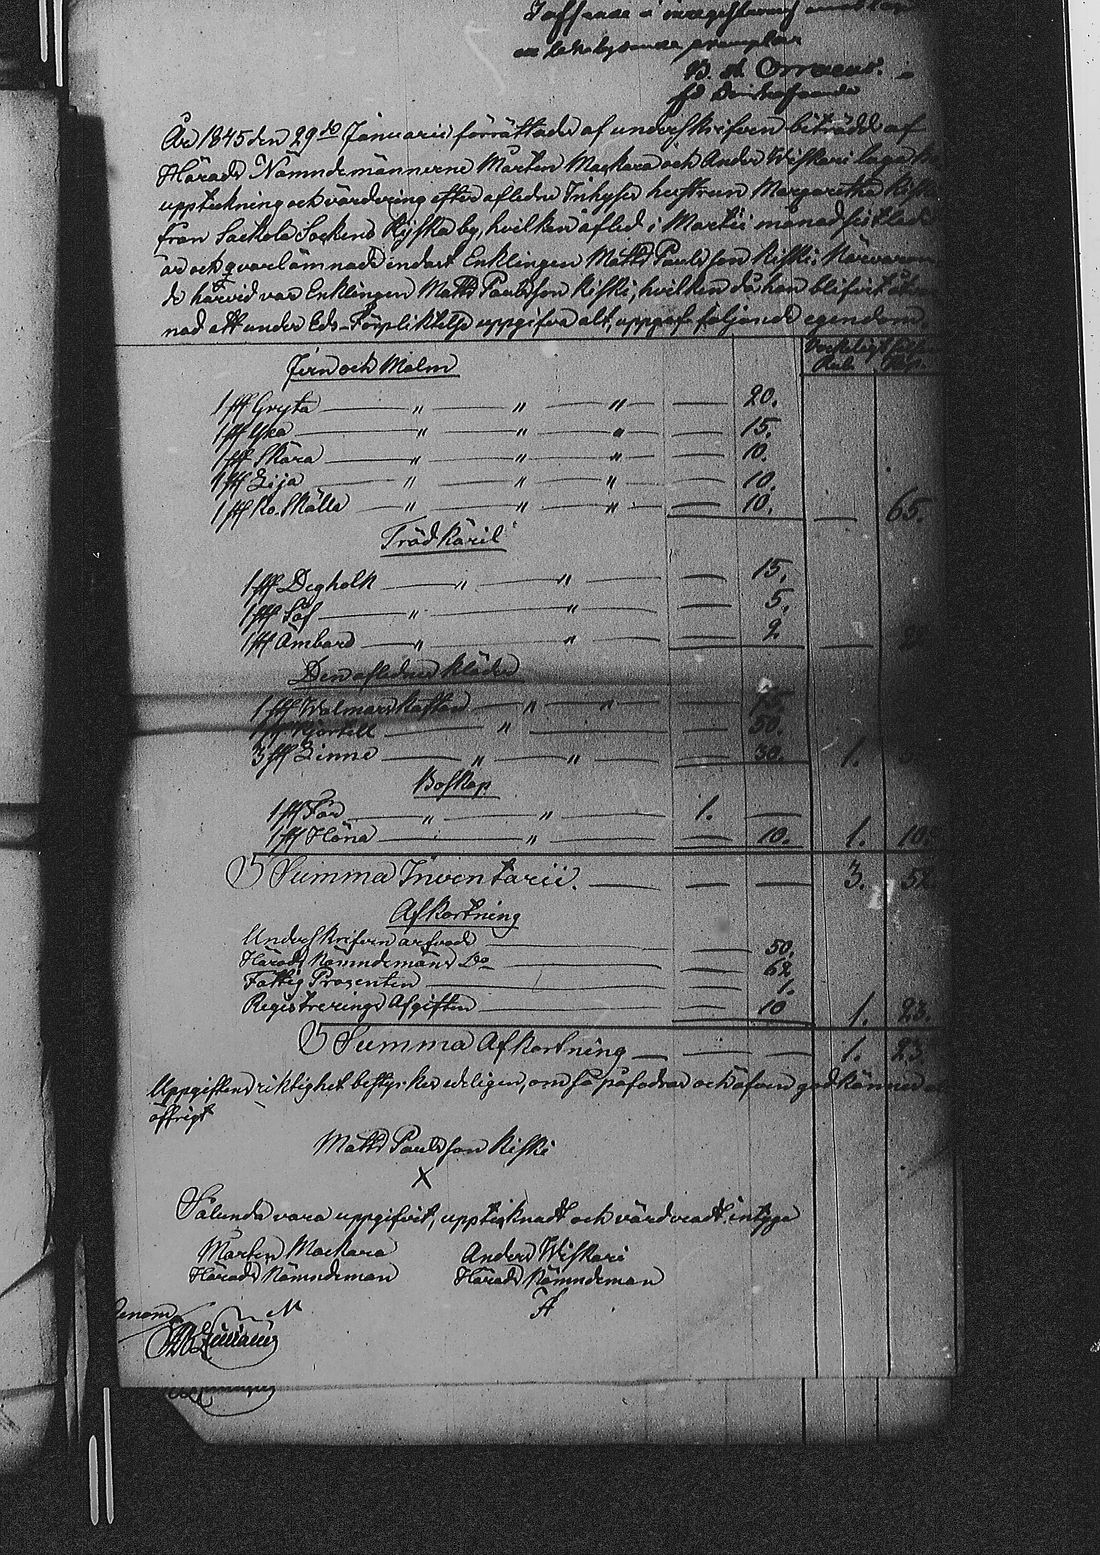 År 1845 den 29de Januarii förrättade af underskrifven biträdd af
Härads Nämndemännerne Mårten Mackara och Anders Wiskari laga
uppteckning och värdering efter afledne Inhyses hustrun Margaretha Riski
från Sackola Sockens Rijska by, hvilken afled i Martii månad sistledne
år och qvarlämnade endast Enklingen Matts Paulsson Riski. Närvaran-
de härvid var Enklingen Matts Paulsson Riski, hvilken då han blifvit
nad att under Eds-Förpliktelse uppgifva alt, uppgaf följande egendom.
Rub. Kop.
Jern och Malm
1 st Gryta — " — " — " — 20.
1 st Yxa — " — " — " — 15.
1 st Skära — " — " — " — 10.
1 st Lija — " — " — " — 10.
1 st Ko. Skälla — " — " — " — 10. — 65.
Träd Käril
1 st Degholk — " — " — 15.
1 st Såf — " — " — 5.
1 st Ämbare — " — " — 2 —
Den aflednes kläder
1 st Walmars kaftan — " — " — 75.
1 st Kjortell — " — 50.
3 st Linne — " — " — 30. 1.
Boskap
1 st Får — " — " — 1. —
1 st Höna — " — 10. 1. 10.
Summa Inventarii. — 3. 52.
Afkortning
Underskrifven arfvode — 50.
Härads Nämndemäns Do — 62.
Fattig Procenten — 1.
Registrerings Afgiften — 10 1. 23.
Summa Afkortning — 1. 23.
Uppgiftens riktighet bestyrkes edeligen, om så påfodras och äfven godkännes
öffrigt
Matts Paulsson Riski
X
Sålunda vara uppgifvit, upptecknadt och värderadt, intyga
Mårten Mackara Anders Wiskari
Härads Nämndeman Härads Nämndeman